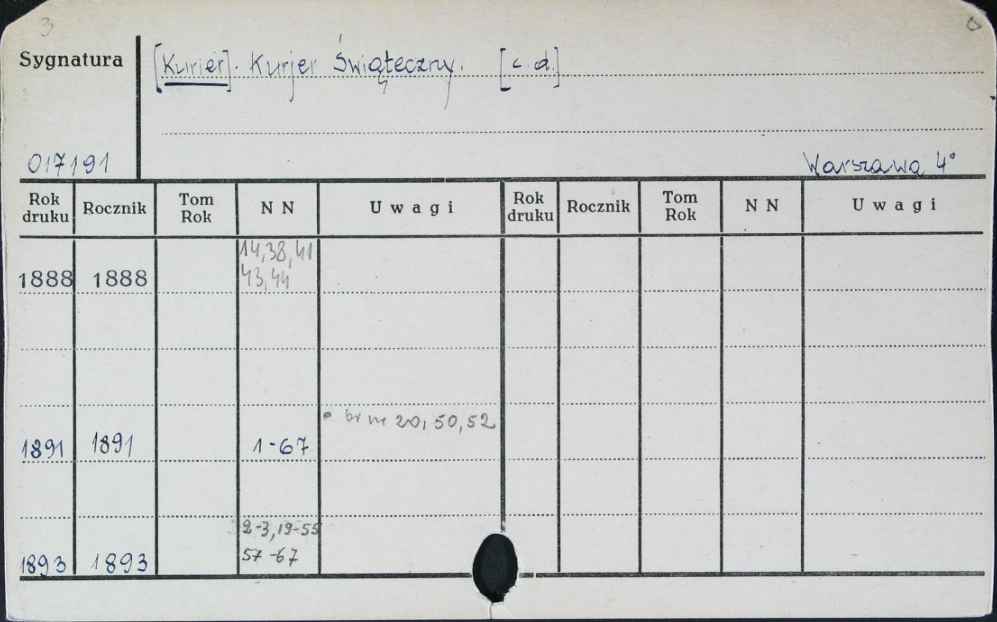 3
Sygnatura [Kurier]. Kurjer Świąteczny. [c.d.]
017191 Warszawa 4°
Rok druku Rocznik Tom Rok NN Uwagi Rok druku Rocznik Tom Rok NN Uwagi
14, 38, 41
1888 1888 43, 44
br nr 20, 50, 52
1891 1891 1-67
2-3, 19-55
1893 1893 57-67